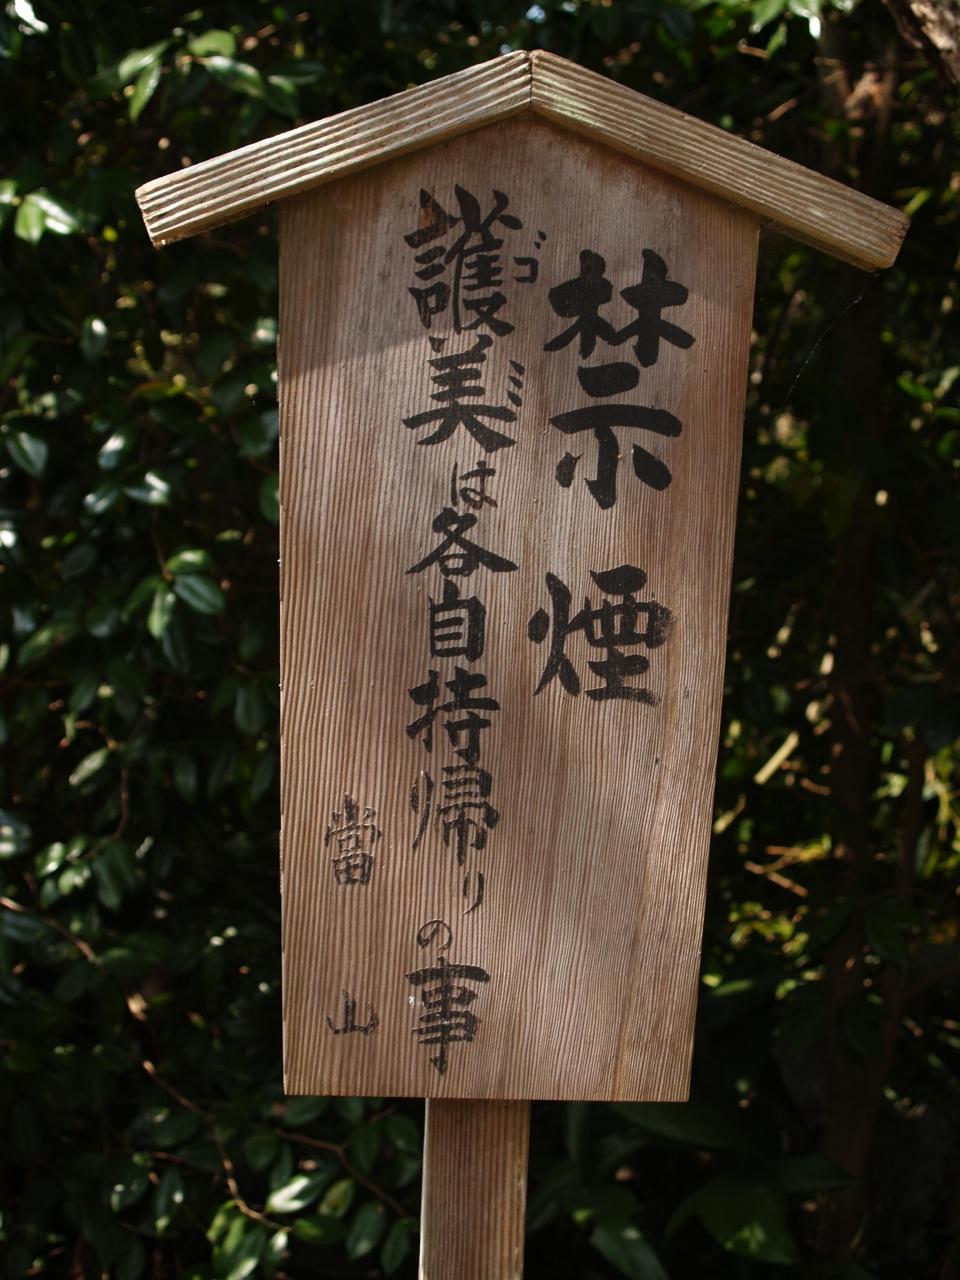 禁煙
護美は各自持帰りの事
ゴミ
當山